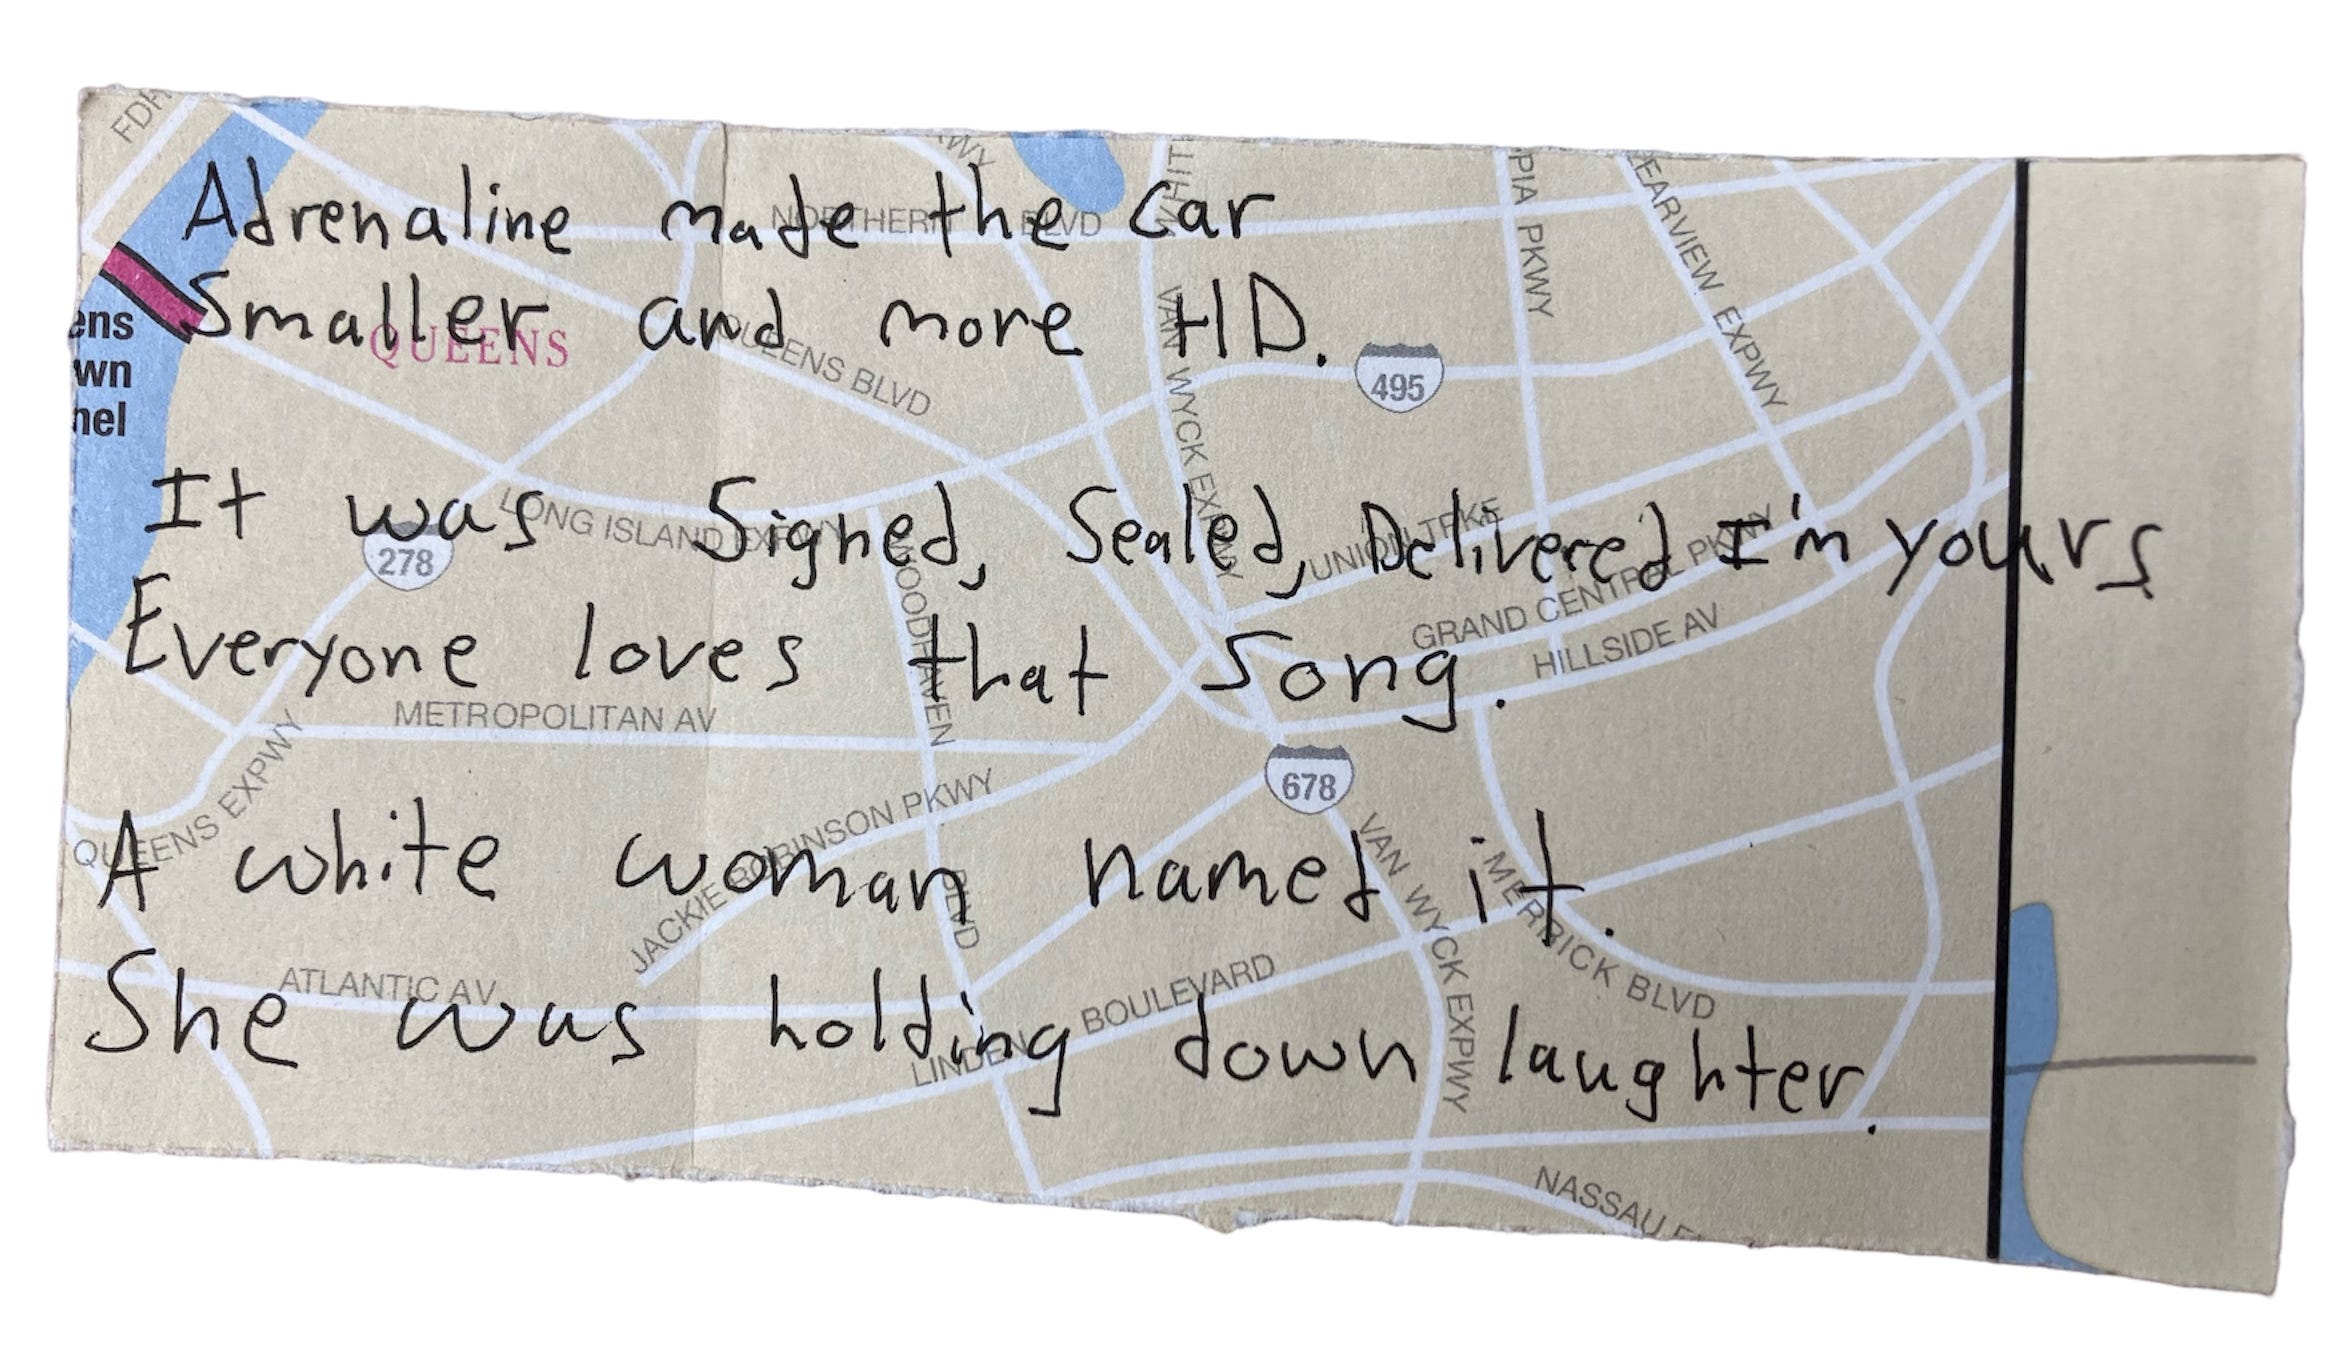 Adrenaline made the car
Smaller and more HD.
It was Signed, Sealed, Delivered I'm yours
Everyone loves that song.
A white woman named it.
She was holding down laughter.
FDR
ens
wn
nel
QUEENS
NORTHERN BLVD
WHIT
PIA PKWY
EARVIEW EXPWY
QUEENS BLVD
VAN WYCK EXPWY
495
LONG ISLAND EXPWY
278
UNION TPKE
GRAND CENTRAL PKWY
HILLSIDE AV
WOODHAVEN
METROPOLITAN AV
QUEENS EXPWY
678
JACKIE ROBINSON PKWY
BLVD
VAN WYCK EXPWY
MERRICK BLVD
ATLANTIC AV
LINDEN BOULEVARD
NASSAU